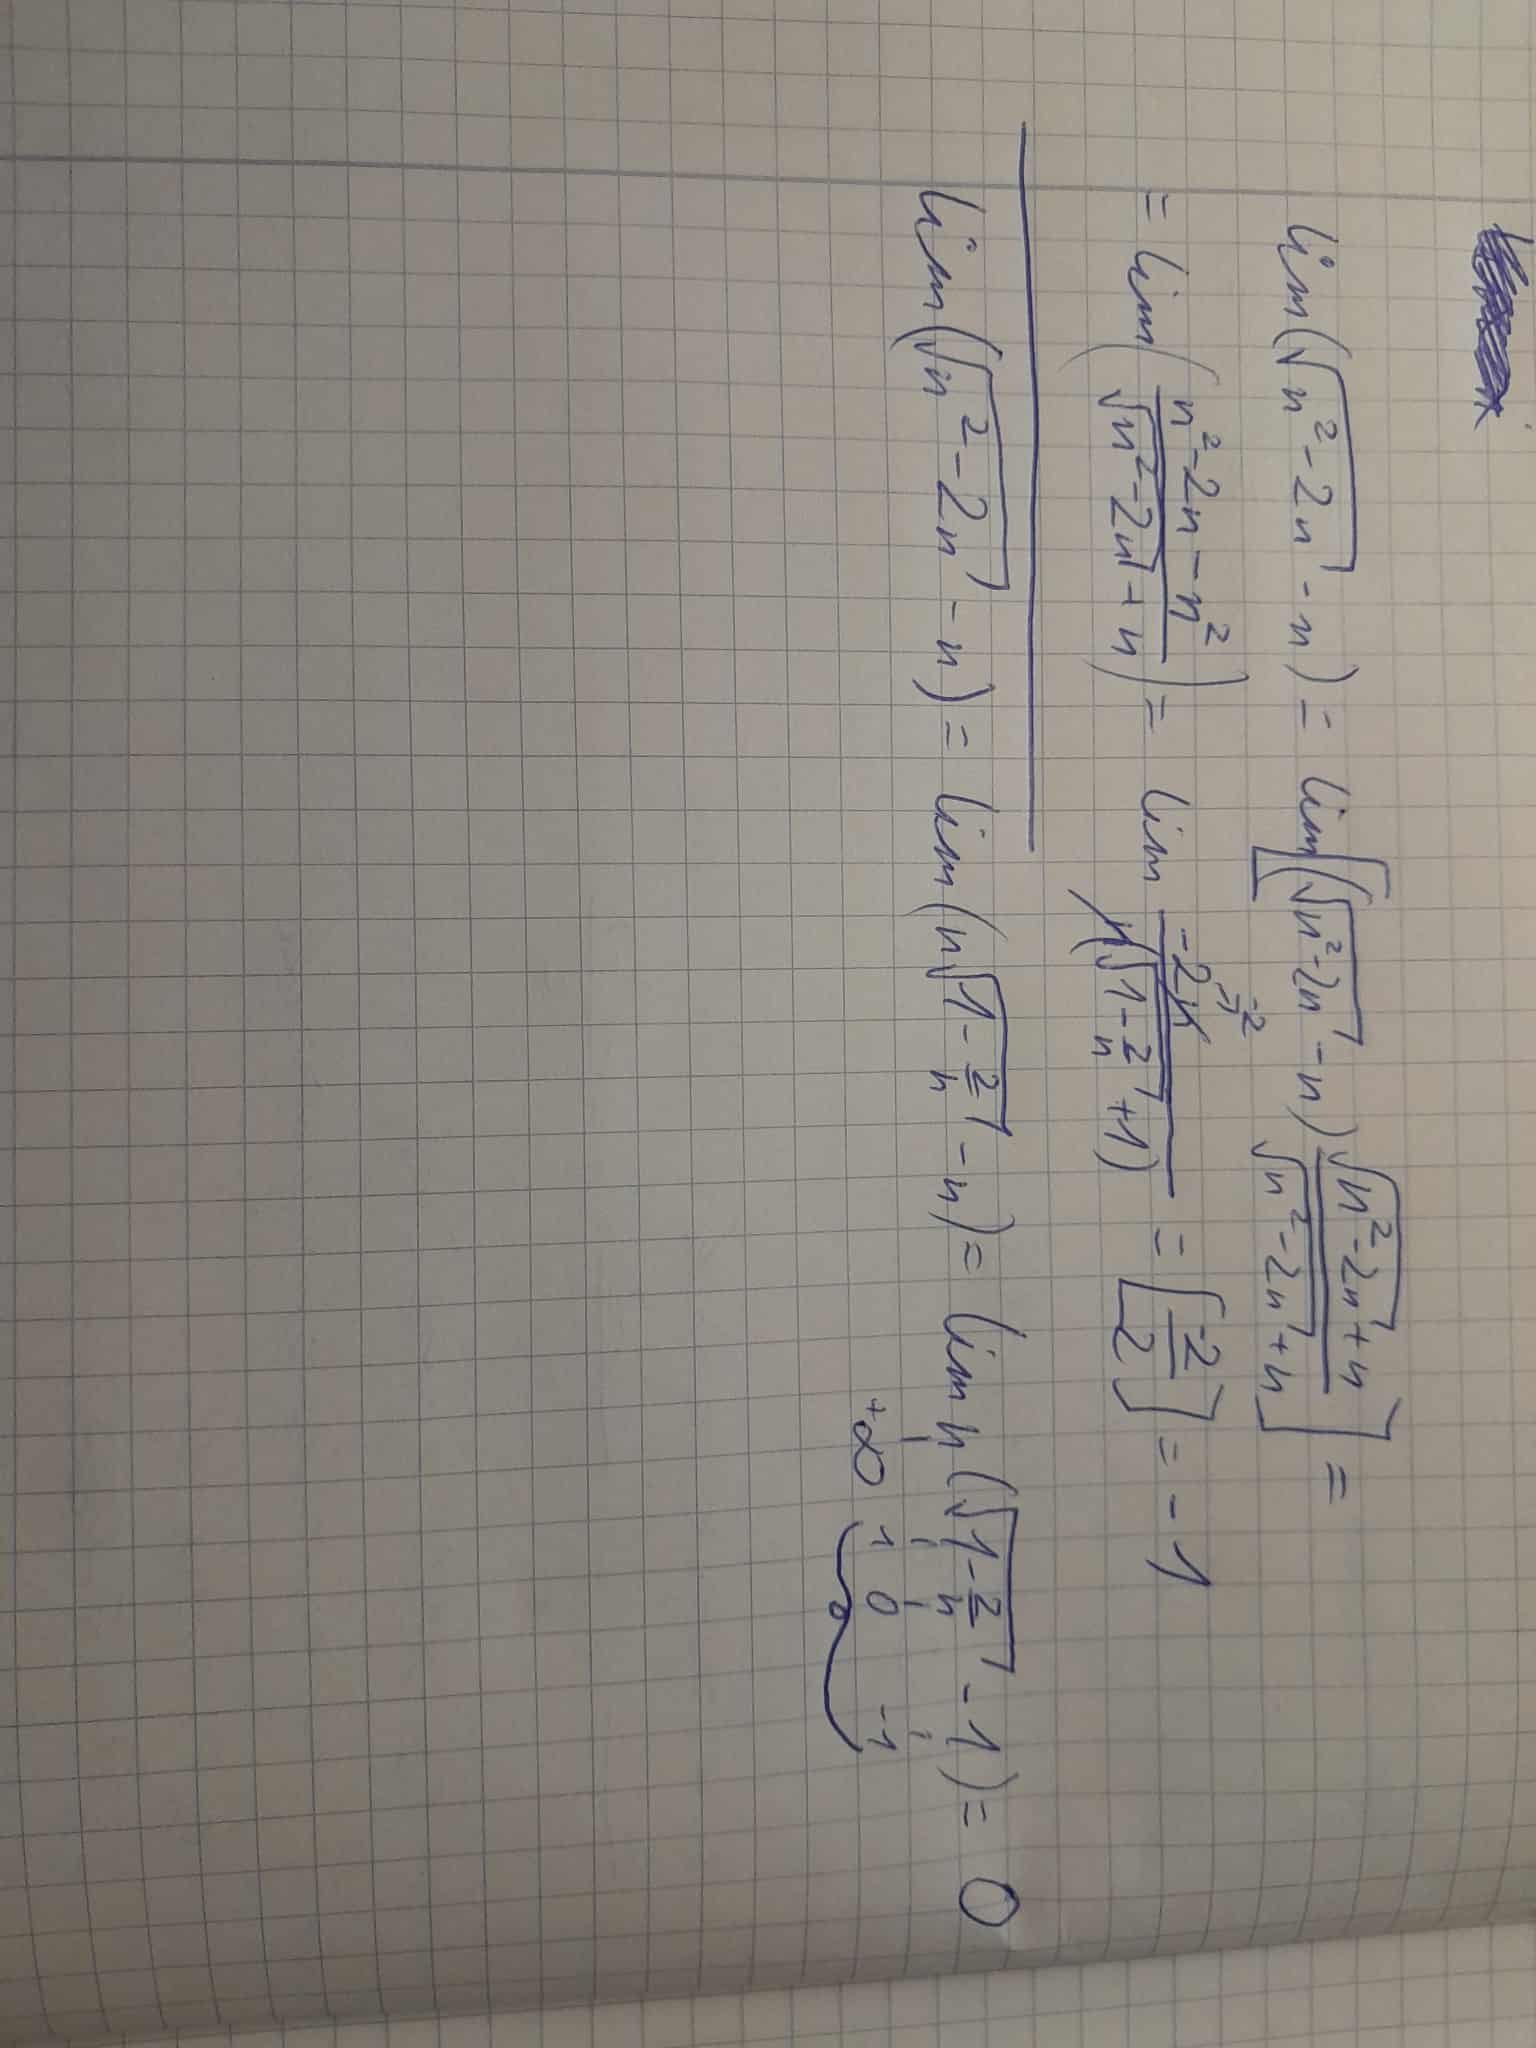 lim(√(n²-2n) - n) = lim[(√(n²-2n) - n) (√(n²-2n) + n)/(√(n²-2n) + n)] =
= lim((n²-2n-n²)/(√(n²-2n) + n)) = lim (-2n → -2)/(n(√(1-2/n) + 1)) = [-2/2] = -1
lim(√(n²-2n) - n) = lim(n√(1-2/n) - n) = lim n(√(1-2/n) - 1) = 0
+∞ 1 0 -1
0